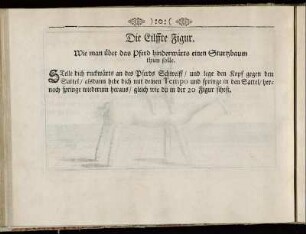 ):o:(
Die Eilffte Figur.
Wie man über das Pferd hinderwärts einen Sturtzbaum
thun solle.
Stelle dich ruckwärts an des Pferds Schweiff/ und lege den Kopf gegen den
Sattel/ alsdann hebe dich mit deinen Tempo und springe in den Sattel/ her-
noch springe wiederum heraus/ gleich wie du in der 20 Figur sihest.